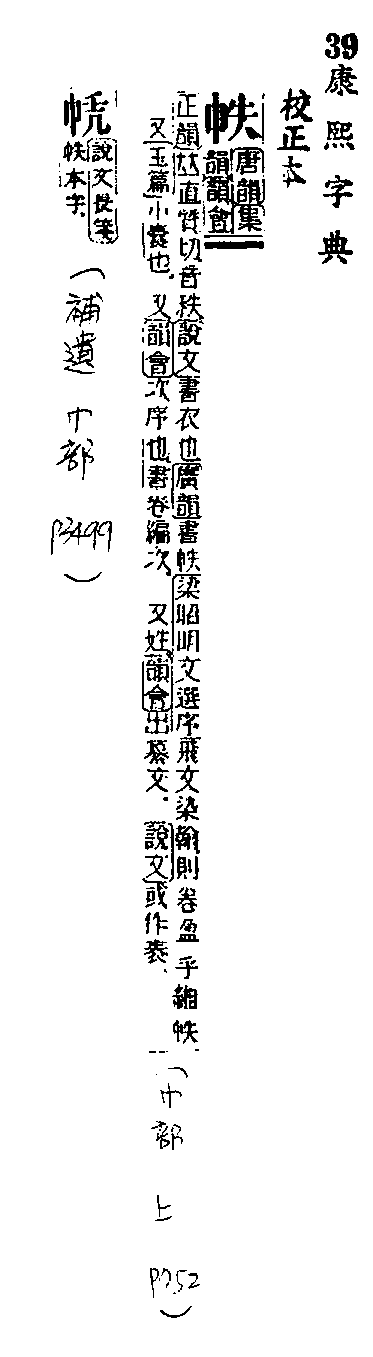 39康熙字典
校正本
帙
唐韻集
韻韻會
正韻𠀤直質切音秩說文書衣也廣韻書帙梁昭明文選序飛文染翰則卷盈乎緗帙
又玉篇小囊也又韻會次序也書卷編次又姓韻會出纂文說文或作袠
(巾部 上 P252)
說文長箋
帙本字
(補遺巾部 P3499)